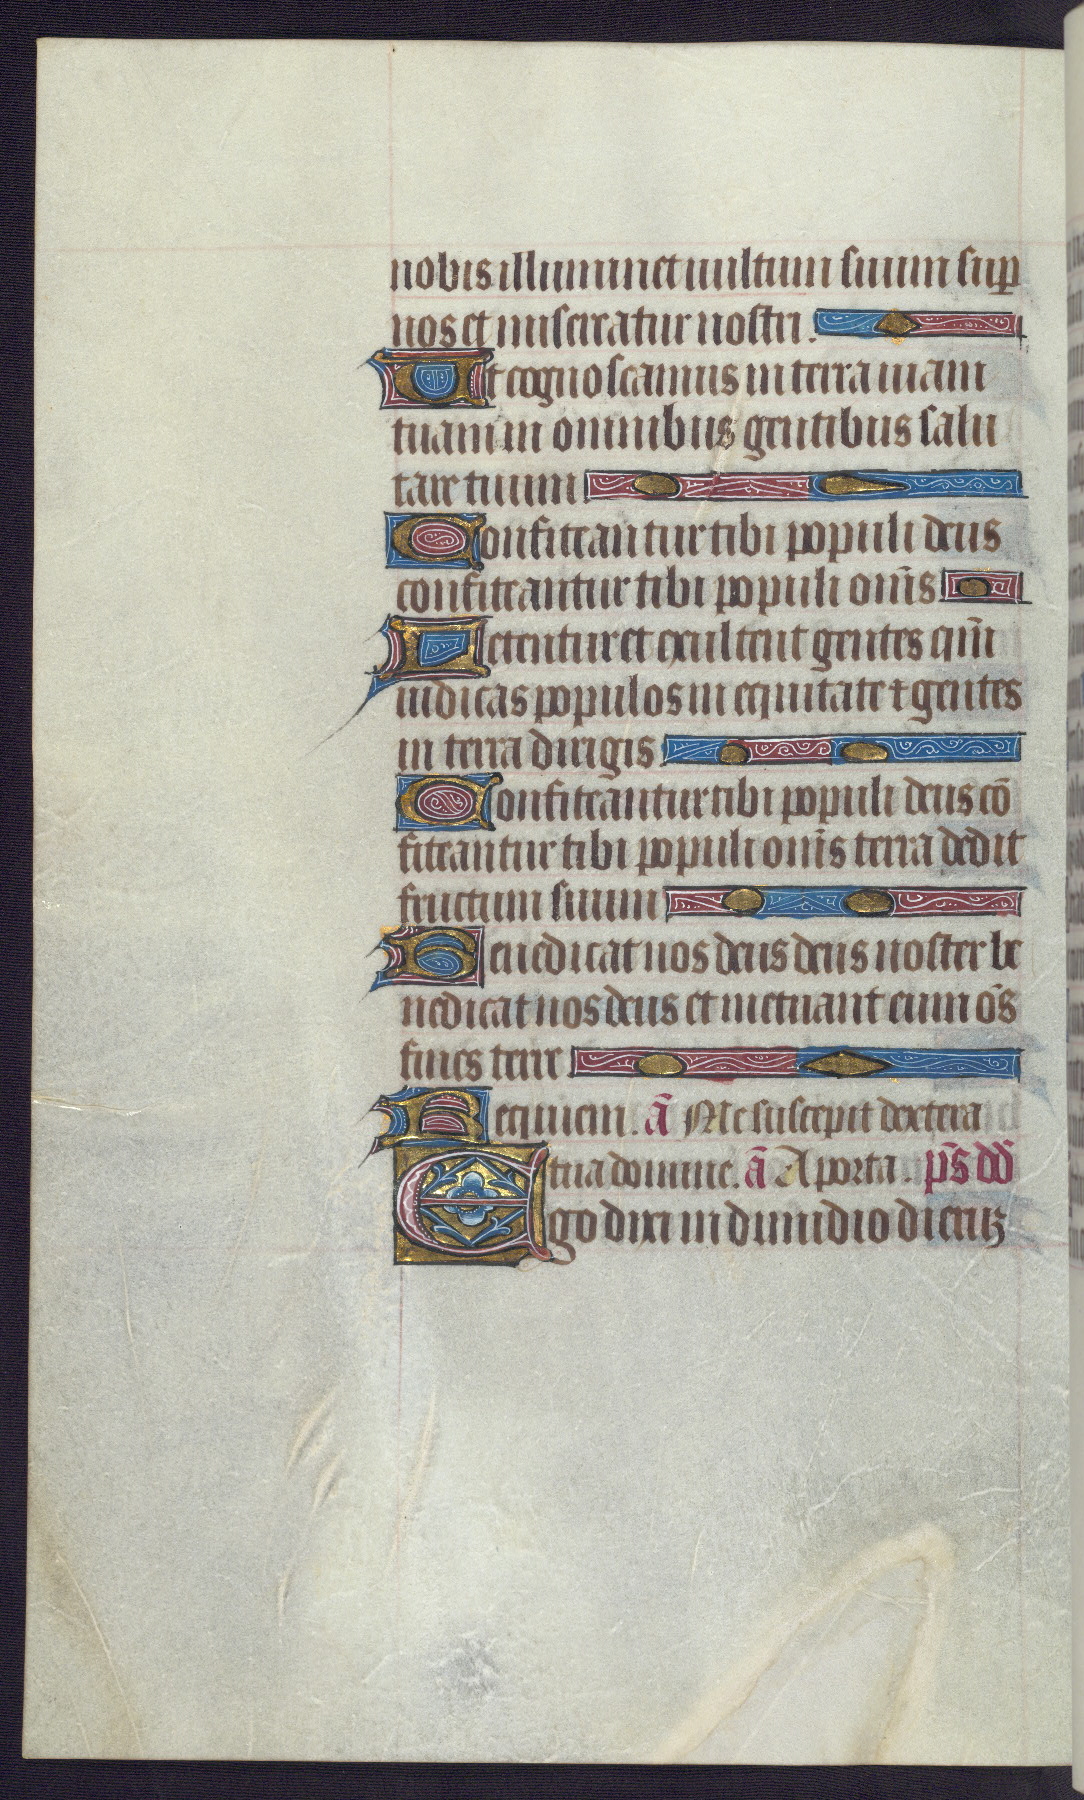 nobis illuminet vultum suum sup
nos et misereatur nostri.
Ut cognoscamus in terra viam
tuam in omnibus gentibus salu
tare tuum
Confiteantur tibi populi deus
confiteantur tibi populi om̄s
Letentur et exultent gentes qm̄
iudicas populos in equitate ⁊ gentes
in terra dirigis
Confiteantur tibi populi deus cō
fiteantur tibi populi om̄s terra dedit
fructum suum
Benedicat nos deus deus noster be
nedicat nos deus et metuant eum ōs
fines terre
Requiem. ā Me suscepit dextera
tua domine. ā A porta. p̄s dd̄
Ego dixi in dimidio dierꝝ